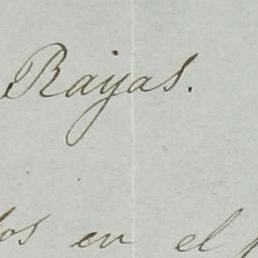 Rayas.
en el